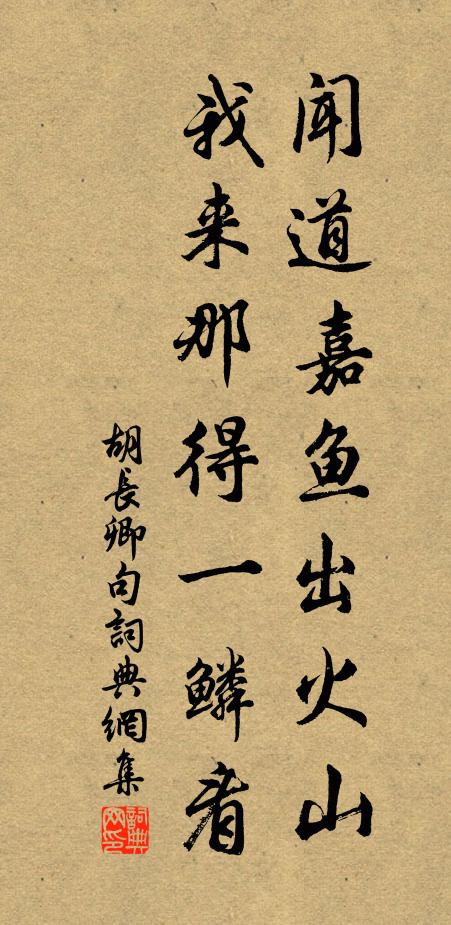 闻道嘉鱼出火山
我来那得一鳞看
胡長卿句詞典網集
詞典网印